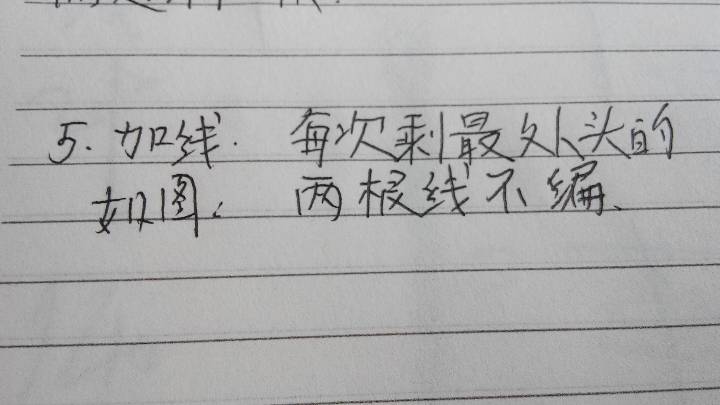 5. 加线. 每次剩最外头的
如图. 两根线不编.